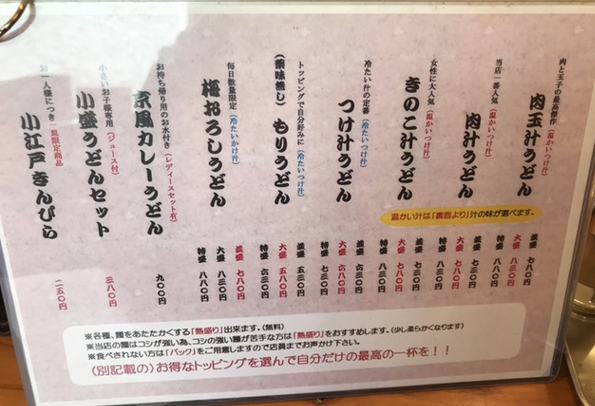 肉と玉子の最高傑作(温かい汁)
肉玉汁うどん
並盛 七八〇円
大盛 八三〇円
特盛
当店一番人気(温かい汁)
肉汁うどん
並盛
大盛 七八〇円
特盛
女性に大人気(温かい汁)
きのこ汁うどん
並盛
大盛 七八〇円
特盛
温かい汁は「裏面より」汁の味が選べます。
冷たい汁の定番(冷たいつけ汁)
つけ汁うどん
並盛
大盛 六八〇円
特盛 七三〇円
トッピングで自分好みに(冷たいつけ汁)
(薬味無し)もりうどん
並盛
大盛 五八〇円
特盛 六三〇円
毎日数量限定(冷たいかけ汁)
梅おろしうどん
並盛 七八〇円
大盛 八三〇円
特盛 八八〇円
お持ち帰り用のお水付き(レディースセット有)
京風カレーうどん
九〇〇円
小さいお子様専用(ジュース付)
小盛うどんセット
三八〇円
お一人様につき一皿限定商品
小江戸きんぴら
二五〇円
※各種、麺をあたたかくする「熱盛り」出来ます。(無料)
※当店の麺はコシが強い為、コシの強い麺が苦手な方は「熱盛り」をおすすめします。(少し柔らかくなります)
※食べきれない方は「パック」をご用意しますので店員までお声がけ下さい。
(別記載の)お得なトッピングを選んで自分だけの最高の一杯を！！